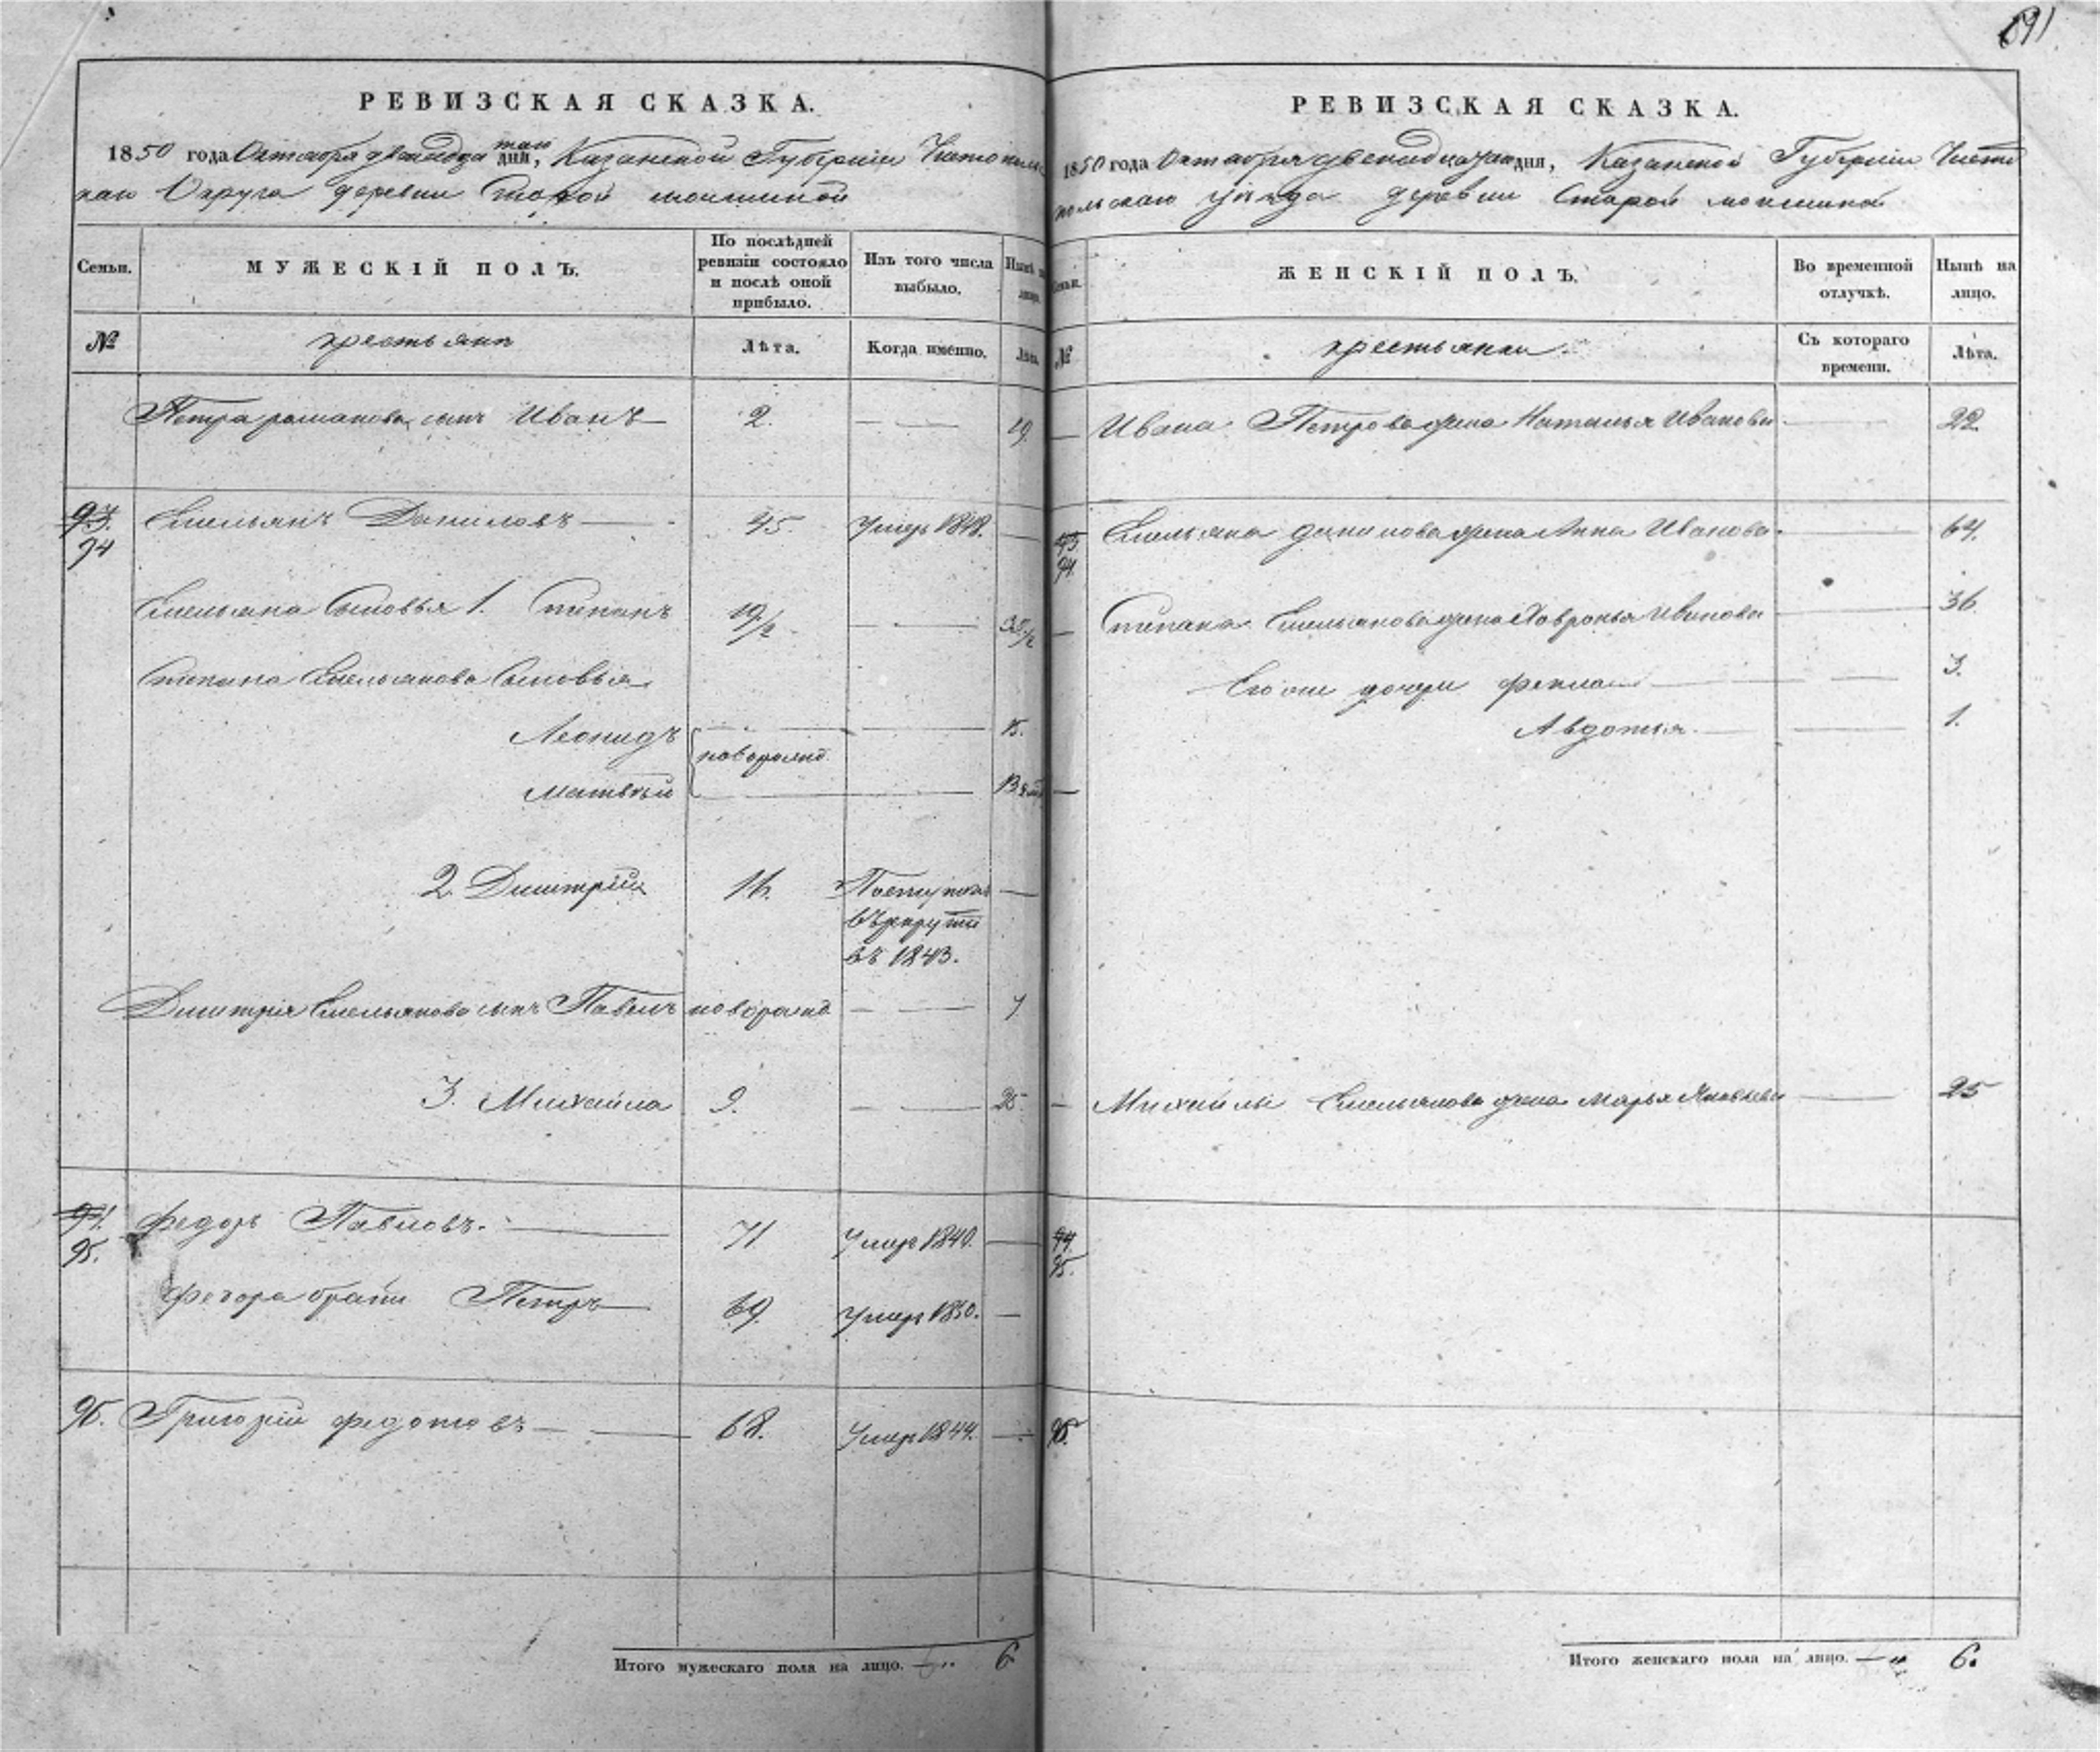 РЕВИЗСКАЯ СКАЗКА.
1850 года Октября двенадца таго дня, Казанской Губерніи Чистополь
скаго Округа деревни Старой
Семьи.
МУЖЕСКІЙ ПОЛЪ.
По послѣдней
ревизіи состояло
и послѣ оной
прибыло.
Изъ того числа
выбыло.
Нынѣ на
лицо.
№
крестьянъ
Лѣта.
Когда именно.
Лѣта.
Петра романова сынъ Иванъ 2. 19
93.
94
Емельянъ Даниловъ 45 Умеръ 1848.
Емельяна Сыновья 1. Степанъ 19 1/2 35 1/2
Степана Емельянова Сыновья
Леонидъ 15.
новорожд.
Матвѣй 13
2 Дмитрій 16. Поступилъ
въ рекруты
въ 1843.
Дмитрія Емельянова сынъ Павелъ новорожд 7
3. Михайла 9. 25.
94.
95.
Федоръ Павловъ. 71. Умеръ 1840.
Федора братъ Петръ 69. Умеръ 1850.
96. Григорій Федотовъ 68. Умеръ 1844.
Итого мужескаго пола на лицо. 6
691
РЕВИЗСКАЯ СКАЗКА.
1850 года Октября двенадцатаго дня, Казанской Губерніи Чисто
польскаго уѣзда деревни Старой
Семьи.
ЖЕНСКІЙ ПОЛЪ.
Во временной
отлучкѣ.
Нынѣ на
лицо.
№
крестьянки.
Съ котораго
времени.
Лѣта.
Ивана Петрова жена Наталья Иванова 22.
93.
94.
Емельяна данилова жена Анна Иванова 64.
Степана Емельянова жена Хавронья Иванова 36
Его же дочери Фекла 3.
Авдотья. 1.
Михайлы Емельянова жена Марья Яковлева 25
94.
95.
96.
Итого женскаго пола на лицо. 6.